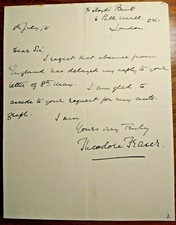 Lloyds Bank
6 Pall Mall. S.W.
London.
July,
Dear Sir,
I regret that absence from
England has delayed my reply to your
letter of 8th May. I am glad to
accede to your request for my auto-
graph.
I am
Yours very truly
Theodore Fraser.